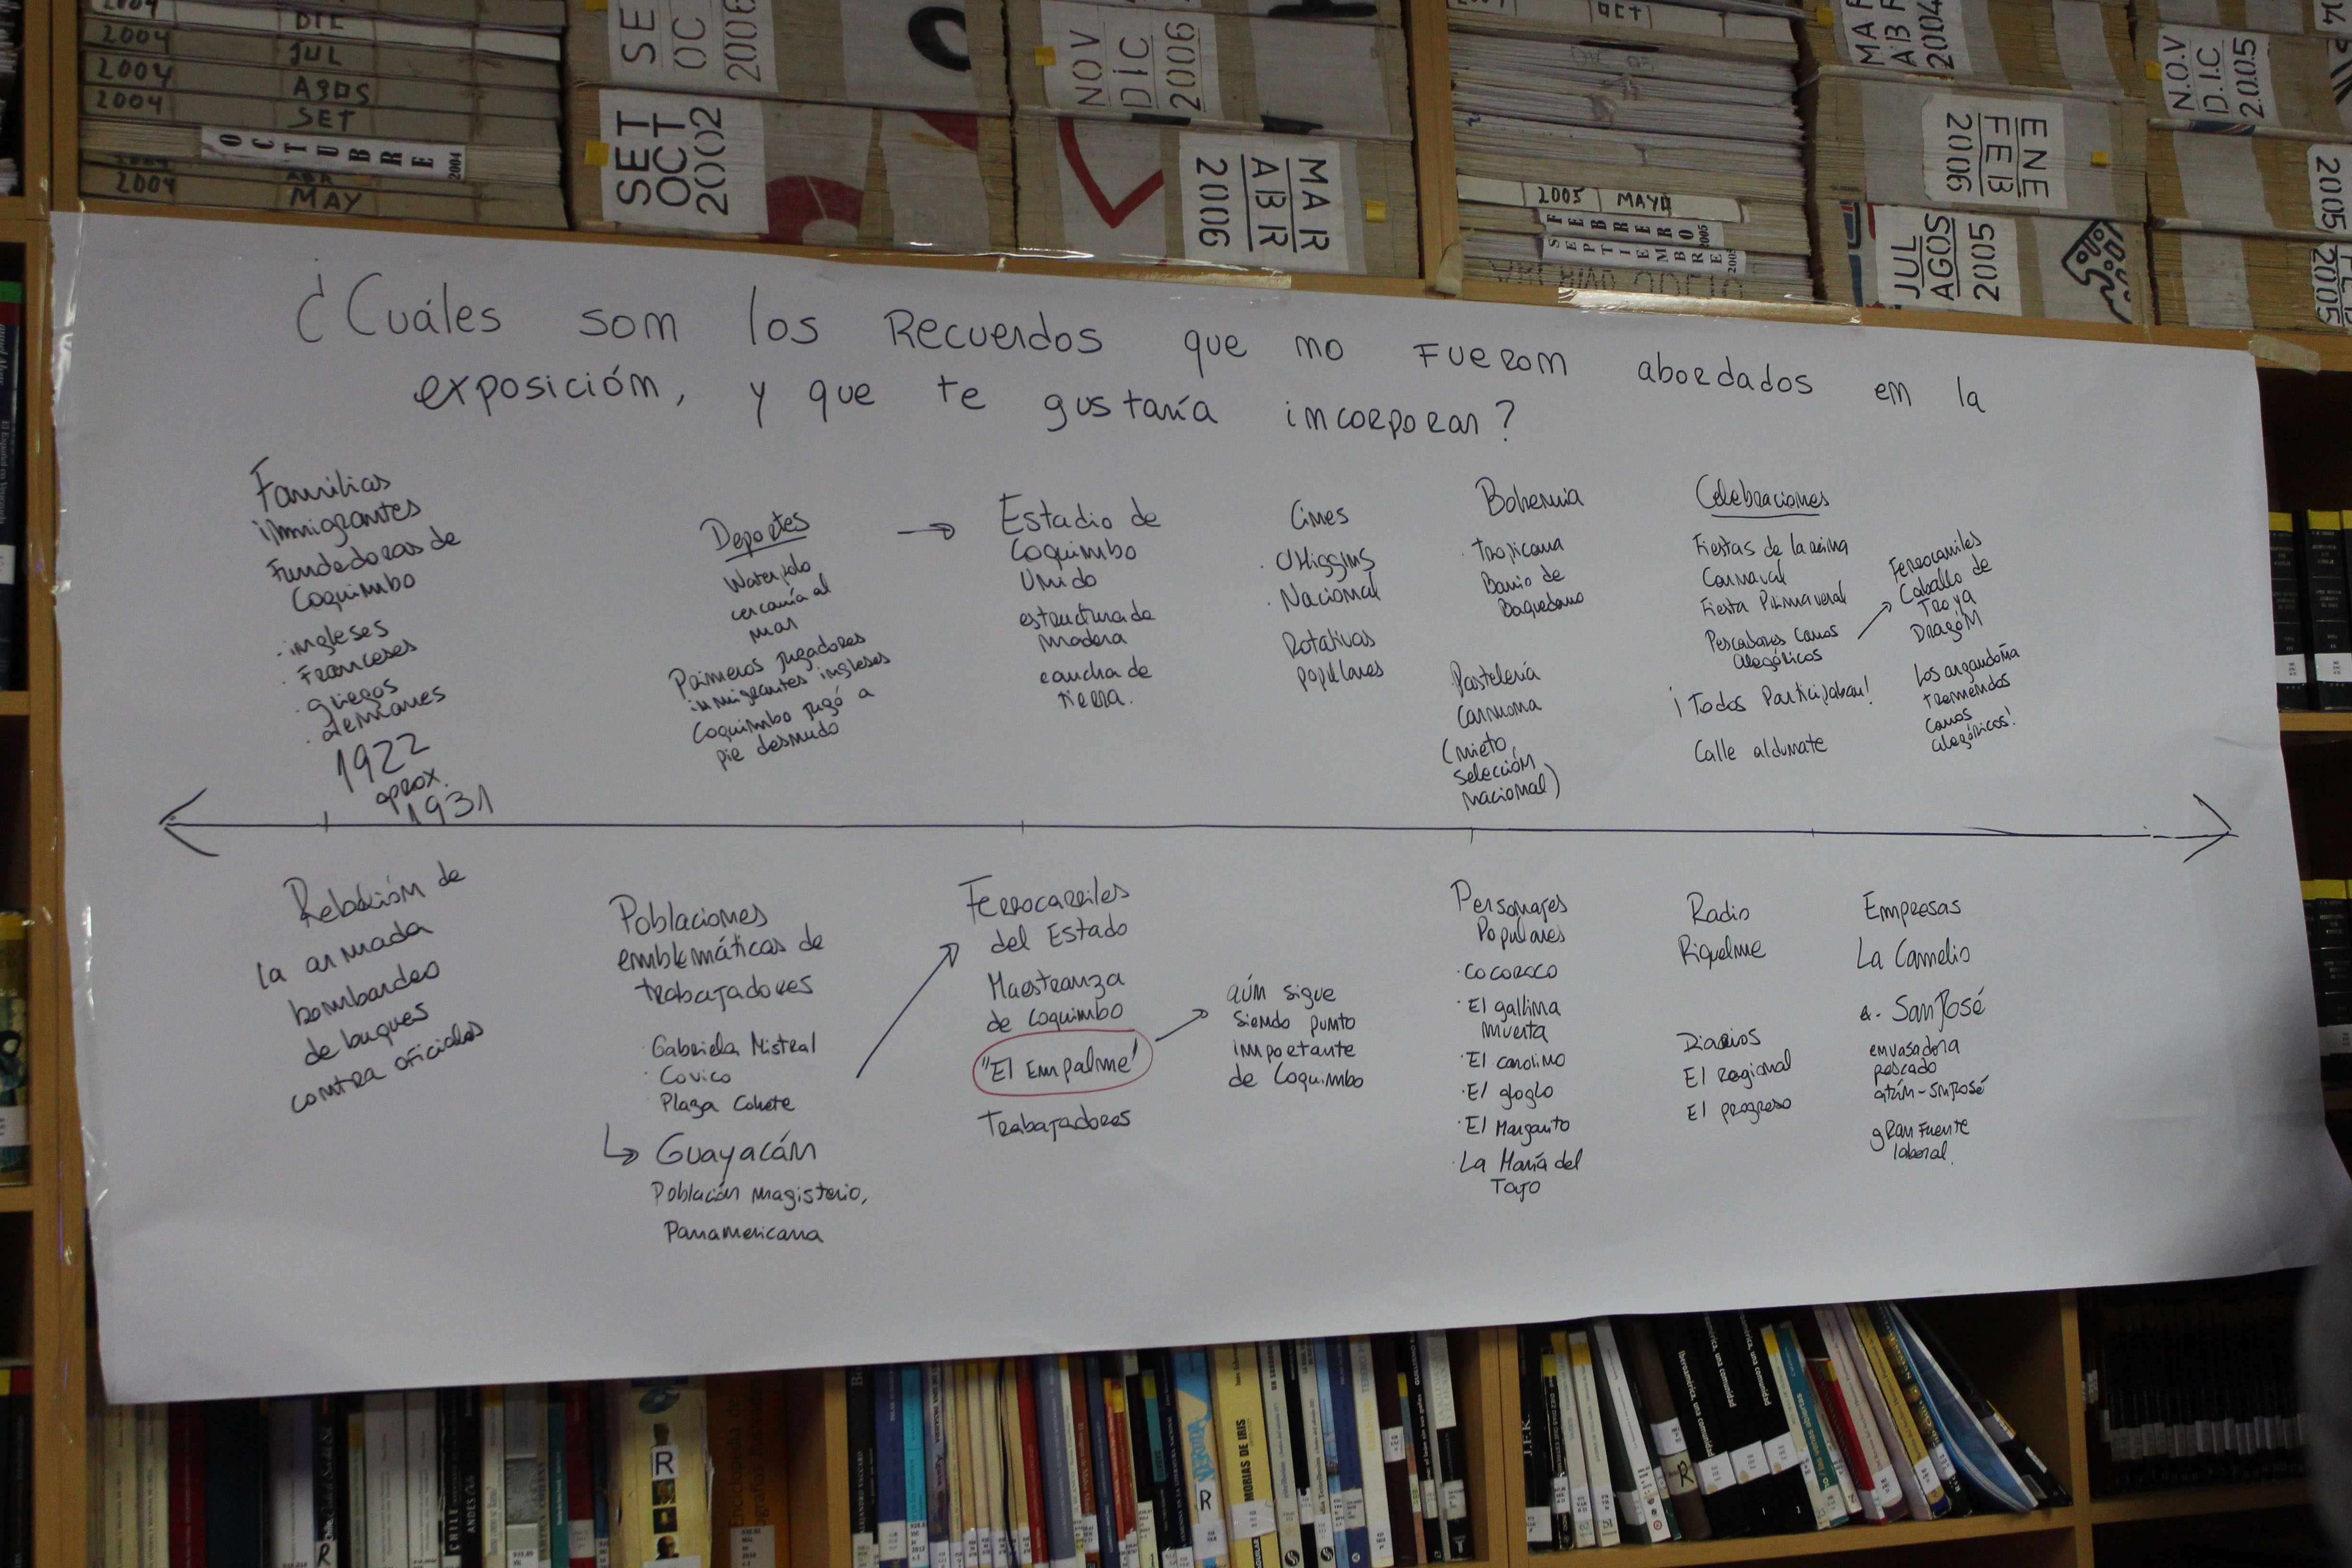 2004 DIC
2004 JUL
2004 AGOS
2004 SET
OCTUBRE 2004
2004 MAY
SET
OCT
2002
2006
NOV
DIC
2006
MAR
ABR
2006
OCT
2005 MAYO
FEBRERO 2005
SEPTIEMBRE 2005
ABR
2004
ENE
FEB
2006
JUL
AGOS
2005
N.O.V
D.I.C
2.0.0.5
2005
2005
¿Cuáles son los Recuerdos que no fueron abordados en la
exposición, y que te gustaría incorporar?
Familias
inmigrantes
Fundedoras de
Coquimbo
. ingleses
. Franceses
. griegos
. alemanes
1922
aprox.
1931
Deportes
Waterpolo
cercanía al
mar
Primeros jugadores
inmigrantes ingleses
Coquimbo jugó a
pie desnudo
Estadio de
Coquimbo
Unido
estructura de
madera
cancha de
tierra.
Cines
. OHiggins
. Nacional
Rotativas
populares
Bohemia
. Tropicana
Barrio de
Baquedano
Pastelería
Carmona
(nieto
selección
nacional)
Celebraciones
Fiestas de la reina
Carnaval
Fiesta Primaveral
Pescadores Carros
alegóricos
¡Todos Participaban!
Calle aldunate
Ferrocarriles
Caballo de
Troya
Dragón
Los argandoña
tremendos
carros
alegóricos!
Rebelión de
la armada
bombardeo
de buques
contra oficiales
Poblaciones
emblemáticas de
trabajadores
. Gabriela Mistral
. Covico
. Plaza Cohete
Guayacán
Población magisterio,
Panamericana
Ferrocarriles
del Estado
Maestranza
de Coquimbo
"El Empalme"
Trabajadores
aún sigue
siendo punto
importante
de Coquimbo
Personajes
Populares
. Cocoroco
. El gallina
muerta
. El carolino
. El gloglo
. El Margarito
. La María del
Tajo
Radio
Riquelme
Diarios
El regional
El progreso
Empresas
La Camelio
San José
envasadora
pescado
atún-Sn José
gran fuente
laboral.
MORIAS DE IRIS
Iberoamérica, una comunidad
J.F.K.
CHILE
R
R